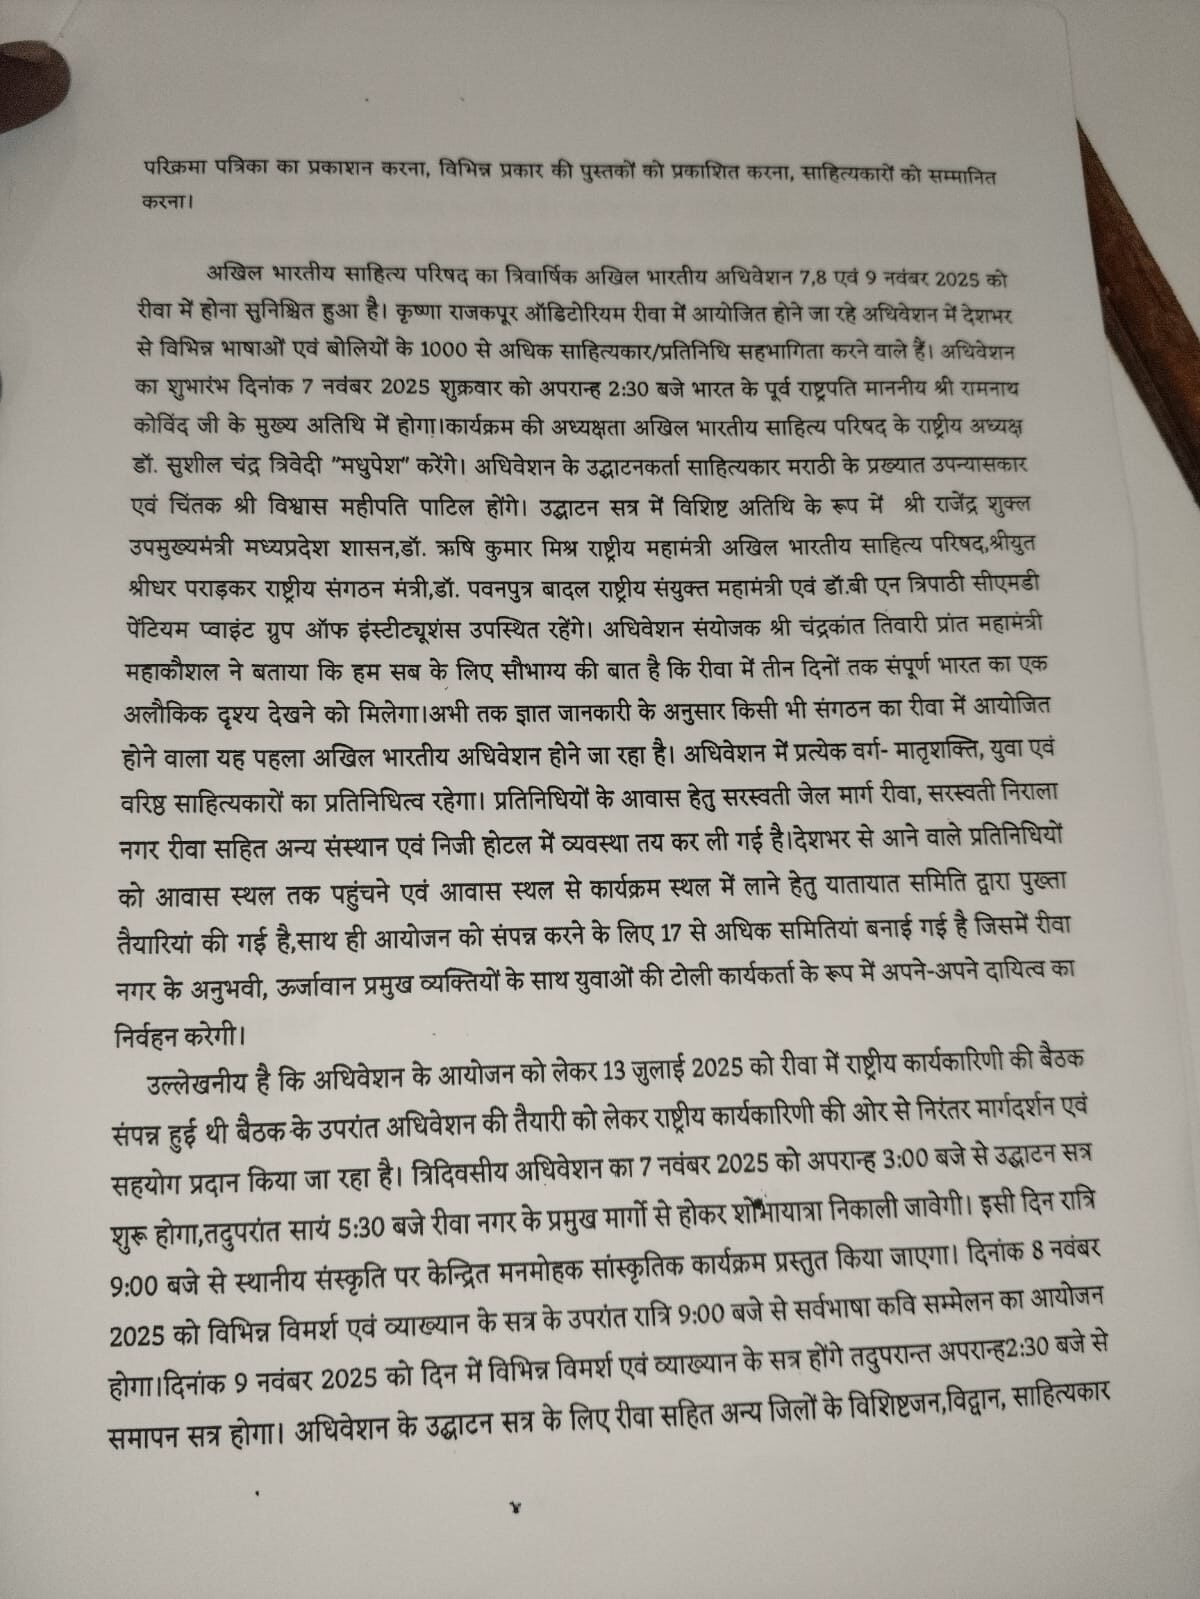 परिक्रमा पत्रिका का प्रकाशन करना, विभिन्न प्रकार की पुस्तकों को प्रकाशित करना, साहित्यकारों को सम्मानित
करना।
अखिल भारतीय साहित्य परिषद का त्रिवार्षिक अखिल भारतीय अधिवेशन 7,8 एवं 9 नवंबर 2025 को
रीवा में होना सुनिश्चित हुआ है। कृष्णा राजकपूर ऑडिटोरियम रीवा में आयोजित होने जा रहे अधिवेशन में देशभर
से विभिन्न भाषाओं एवं बोलियों के 1000 से अधिक साहित्यकार/प्रतिनिधि सहभागिता करने वाले हैं। अधिवेशन
का शुभारंभ दिनांक 7 नवंबर 2025 शुक्रवार को अपरान्ह 2:30 बजे भारत के पूर्व राष्ट्रपति माननीय श्री रामनाथ
कोविंद जी के मुख्य अतिथि में होगा।कार्यक्रम की अध्यक्षता अखिल भारतीय साहित्य परिषद के राष्ट्रीय अध्यक्ष
डॉ. सुशील चंद्र त्रिवेदी "मधुपेश" करेंगे। अधिवेशन के उद्घाटनकर्ता साहित्यकार मराठी के प्रख्यात उपन्यासकार
एवं चिंतक श्री विश्वास महीपति पाटिल होंगे। उद्घाटन सत्र में विशिष्ट अतिथि के रूप में श्री राजेंद्र शुक्ल
उपमुख्यमंत्री मध्यप्रदेश शासन,डॉ. ऋषि कुमार मिश्र राष्ट्रीय महामंत्री अखिल भारतीय साहित्य परिषद,श्रीयुत
श्रीधर पराड़कर राष्ट्रीय संगठन मंत्री,डॉ. पवनपुत्र बादल राष्ट्रीय संयुक्त महामंत्री एवं डॉ.बी एन त्रिपाठी सीएमडी
पेंटियम प्वाइंट ग्रुप ऑफ इंस्टीट्यूशंस उपस्थित रहेंगे। अधिवेशन संयोजक श्री चंद्रकांत तिवारी प्रांत महामंत्री
महाकौशल ने बताया कि हम सब के लिए सौभाग्य की बात है कि रीवा में तीन दिनों तक संपूर्ण भारत का एक
अलौकिक दृश्य देखने को मिलेगा।अभी तक ज्ञात जानकारी के अनुसार किसी भी संगठन का रीवा में आयोजित
होने वाला यह पहला अखिल भारतीय अधिवेशन होने जा रहा है। अधिवेशन में प्रत्येक वर्ग- मातृशक्ति, युवा एवं
वरिष्ठ साहित्यकारों का प्रतिनिधित्व रहेगा। प्रतिनिधियों के आवास हेतु सरस्वती जेल मार्ग रीवा, सरस्वती निराला
नगर रीवा सहित अन्य संस्थान एवं निजी होटल में व्यवस्था तय कर ली गई है।देशभर से आने वाले प्रतिनिधियों
को आवास स्थल तक पहुंचने एवं आवास स्थल से कार्यक्रम स्थल में लाने हेतु यातायात समिति द्वारा पुख्ता
तैयारियां की गई है,साथ ही आयोजन को संपन्न करने के लिए 17 से अधिक समितियां बनाई गई है जिसमें रीवा
नगर के अनुभवी, ऊर्जावान प्रमुख व्यक्तियों के साथ युवाओं की टोली कार्यकर्ता के रूप में अपने-अपने दायित्व का
निर्वहन करेगी।
उल्लेखनीय है कि अधिवेशन के आयोजन को लेकर 13 जुलाई 2025 को रीवा में राष्ट्रीय कार्यकारिणी की बैठक
संपन्न हुई थी बैठक के उपरांत अधिवेशन की तैयारी को लेकर राष्ट्रीय कार्यकारिणी की ओर से निरंतर मार्गदर्शन एवं
सहयोग प्रदान किया जा रहा है। त्रिदिवसीय अधिवेशन का 7 नवंबर 2025 को अपरान्ह 3:00 बजे से उद्घाटन सत्र
शुरू होगा,तदुपरांत सायं 5:30 बजे रीवा नगर के प्रमुख मार्गो से होकर शोभायात्रा निकाली जावेगी। इसी दिन रात्रि
9:00 बजे से स्थानीय संस्कृति पर केन्द्रित मनमोहक सांस्कृतिक कार्यक्रम प्रस्तुत किया जाएगा। दिनांक 8 नवंबर
2025 को विभिन्न विमर्श एवं व्याख्यान के सत्र के उपरांत रात्रि 9:00 बजे से सर्वभाषा कवि सम्मेलन का आयोजन
होगा।दिनांक 9 नवंबर 2025 को दिन में विभिन्न विमर्श एवं व्याख्यान के सत्र होंगे तदुपरान्त अपरान्ह2:30 बजे से
समापन सत्र होगा। अधिवेशन के उद्घाटन सत्र के लिए रीवा सहित अन्य जिलों के विशिष्टजन,विद्वान, साहित्यकार